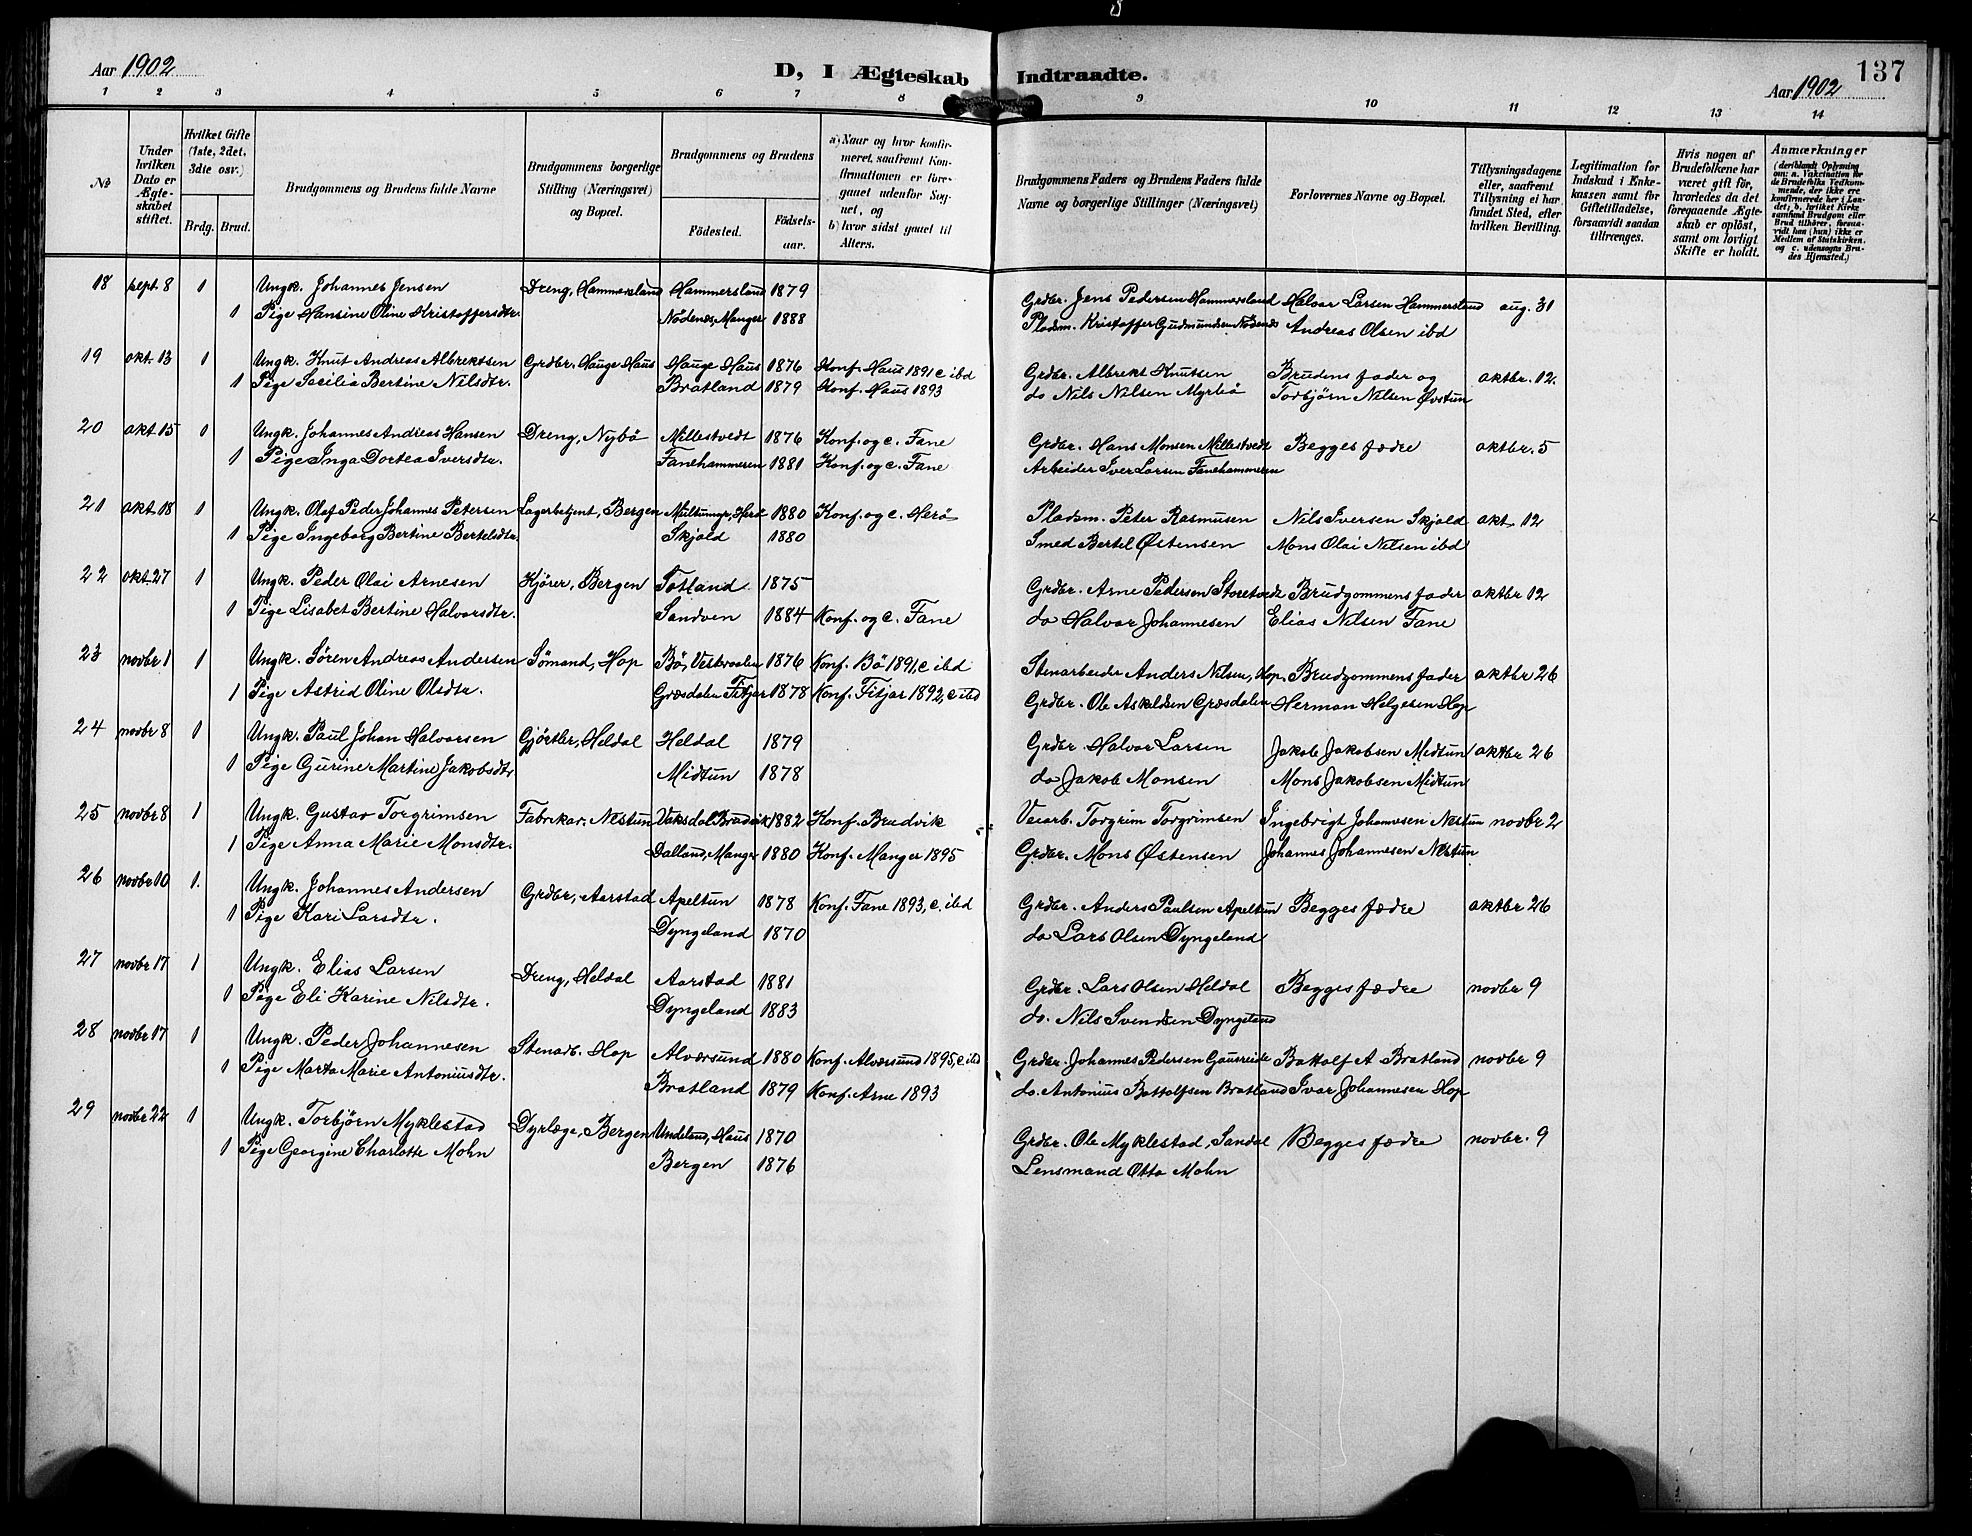 Aar 1902
D, I Ægteskab Indtraadte.
Aar 1902
137
1 2 3 4 5 6 7 8 9 10 11 12 13 14
№
Under hvilken Dato er Ægteskabet stiftet.
Hvilket Gifte (1ste, 2det, 3die osv.)
Brdg. Brud.
Brudgommens og Brudens fulde Navne
Brudgommens borgerlige Stilling (Næringsvei) og Bopæl.
Brudgommens og Brudens
Fødested. Fødselsaar.
a) Naar og hvor konfirmeret, saafremt Konfirmationen er foregaaet udenfor Sognet, og
b) hvor sidst gaaet til Alters.
Brudgommens Faders og Brudens Faders fulde Navne og borgerlige Stillinger (Næringsvei)
Forlovernes Navne og Bopæl.
Tillysningsdagene eller, saafremt Tillysning ei har fundet Sted, efter hvilken Bevilling.
Legitimation for Indskud i Enkekassen samt for Giftetilladelse, forsaavidt saadan tiltrænges.
Hvis nogen af Brudefolkene har været gift før, hvorledes da det foregaaende Ægteskab er opløst, samt om lovligt Skifte er holdt.
Anmærkninger (deriblandt Oplysning om: a. Vaccination for de Brudefolks Vedkommende, der ikke ere konfirmerede her i Landet; b. hvilket Kirkesamfund Brudgom eller Brud tilhører, forsaavidt han (hun) ikke er Medlem af Statskirken, og c. udensogns Brudes Hjemsted.)
18 sept. 8 1 Ungk. Johannes Jensen Dreng, Hammersland Hammersland 1879 Grdbr. Jens Pedersen Hammersland Halvor Larsen Hammersland aug. 31
1 Pige Hansine Oline Kristoffersdtr. Nödenes, Manger 1888 Pladsm. Kristoffer Gudmundsen Nödenes Andreas Olsen ibd
19 okt. 13 1 Ungk. Knut Andreas Albrektsen Grdbr. Hauge Haus Hauge Haus 1876 Konf. Haus 1891 c ibd Grdbr. Albrekt Knutsen Brudens fader og oktbr. 12.
1 Pige Sesilia Bertine Nilsdtr. Bratland 1879 Konf. Haus 1893 do Nils Nilsen Myrbö Torbjørn Nilsen Øvstun
20 okt 15 1 Ungk. Johannes Andreas Hansen Dreng, Nybö Millestvedt 1876 Konf. og c. Fane Grdbr. Hans Monsen Millestvedt Begges fædre oktbr. 5
1 Pige Inga Dortea Iversdtr. Fanehammeren 1881 Konf. og c. Fane Arbeider Iver Larsen Fanehammeren
21 okt 18 1 Ungk. Olaf Peder Johannes Petersen Lagerbetjent, Bergen Herö 1880 Konf. og c. Herö Pladsm. Peter Rasmusen Nils Iversen Skjold okt. 12
1 Pige Ingeborg Bertine Bertelsdtr Skjold 1880 Smed Bertel Østensen Mons Olai Nilsen ibd
22 okt 27 1 Ungk. Peder Olai Arnesen Kjörer, Bergen Totland 1875 Grdbr. Arne Pedersen Storetvedt Brudgommens fader oktbr 12
1 Pige Lisabet Bertine Halvorsdtr. Sandven 1884 Konf. og c. Fane do Halvor Johannesen Elias Nilsen Fane
23 novbr 1 1 Ungk. Sören Andreas Andersen Sömand, Hop Bö, Vesteraalen 1876 Konf. Bö 1891, c ibd Stenarbeider Anders Nilsen, Hop. Brudgommens fader oktbr 26
1 Pige Astrid Oline Olsdtr. Græsdalen Fitjar 1878 Konf. Fitjar 1892, c ibd Grdbr. Ole Askildsen Græsdalen Herman Helgesen Hop
24 novbr 8 1 Ungk. Paul Johan Halvorsen Gjörtler, Heldal Heldal 1879 Grdbr. Halvor Larsen Jakob Jakobsen Midtun oktbr 26
1 Pige Gurine Martine Jakobsdtr Midtun 1878 do Jakob Monsen Mons Jakobsen Midtun
25 novbr 8 1 Ungk. Gustav Torgrimsen Fabrikar. Nestun Vaksdal Brudvik 1882 Konf. Brudvik Veiarb. Torgrim Torgrimsen Ingebrigt Johannesen Nestun novbr 2
1 Pige Anna Marie Monsdtr. Dalland, Manger 1880 Konf. Manger 1895 Grdbr. Mons Østensen Johannes Johannesen Nestun
26 novbr 10 1. Ungk. Johannes Andersen Grdbr, Aarstad Apeltun 1878 Konf. Fane 1893, c. ibd Grdbr. Anders Paulsen Apeltun Begges fædre oktbr 26
1 Pige Kari Larsdtr. Dyngeland 1870 do Lars Olsen Dyngeland
27 novbr 17 1 Ungk. Elias Larsen Dreng, Heldal Aarstad 1881 Grdbr. Lars Olsen Heldal Begges fædre novbr 9
1 Pige Eli Karine Nilsdtr. Dyngeland 1883 do. Nils Svendsen Dyngeland
28 novbr 17 1 Ungk. Peder Johannesen Stenarb. Hop Alversund 1880 Konf. Alversund 1895, c ibd Grdbr. Johannes Pedersen Gausereide Battolf A Bratland novbr 9
1 Pige Marta Marie Antoniusdtr. Bratland 1879 Konf. Arne 1893 do. Antonius Battolfsen Bratland Ivar Johannesen Hop
29 novbr 22 1 Ungk. Torbjörn Myklestad Dyrlæge, Bergen Undeland, Haus 1870 Grdbr. Ole Myklestad, Sandal Begges fædre novbr. 9
1 Pige Georgine Charlotte Mohn Bergen 1876 Lensmand Otto Mohn